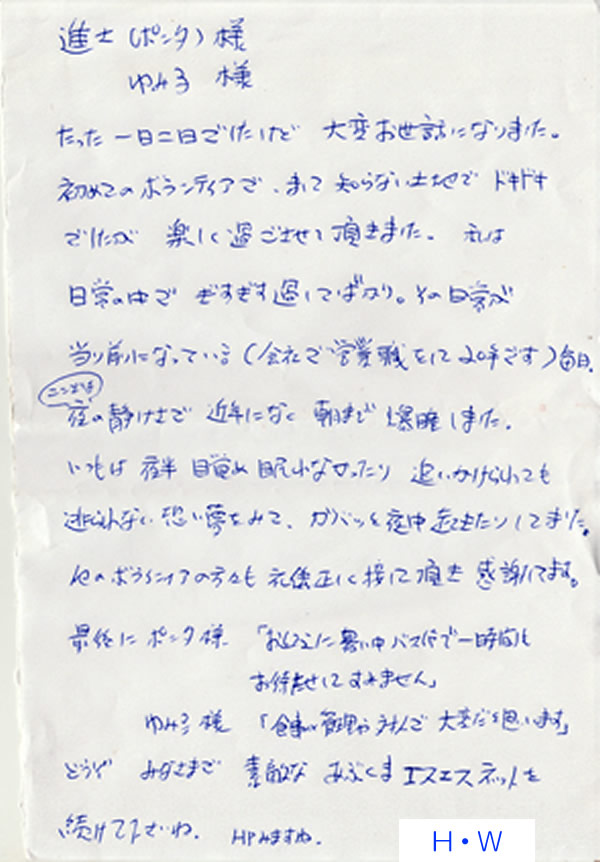 進士(ポンタ)様
ゆみ子 様
たった一日二日でしたけど 大変お世話になりました。
初めてのボランティアで、まして 知らない土地で ドキドキ
でしたが 楽しく過ごさせて頂きました。 私は
日常の中で ぎすぎす過してばかり。その日常が
当り前になっている(会社で営業職をして20年です)毎日、
ここでは
夜の静けさで 近年になく 朝まで 爆睡しました。
いつもは 夜半 目覚め 眠れなかったり 追いかけられても
逃られない恐い夢をみて、ガバッと夜中起きたりしてました。
他のボランティアの方々も 礼儀正しく接して頂き 感謝してます。
最後に ポンタ様 「暑い中バス停で一時間も
お待たせしてすみません」
ゆみ子様 「食事の管理やらで 大変だと思います」
どうぞ みなさまで 素敵な あぶくまエスエスネットを
続けて下さいね。 HPみますね。
H・W